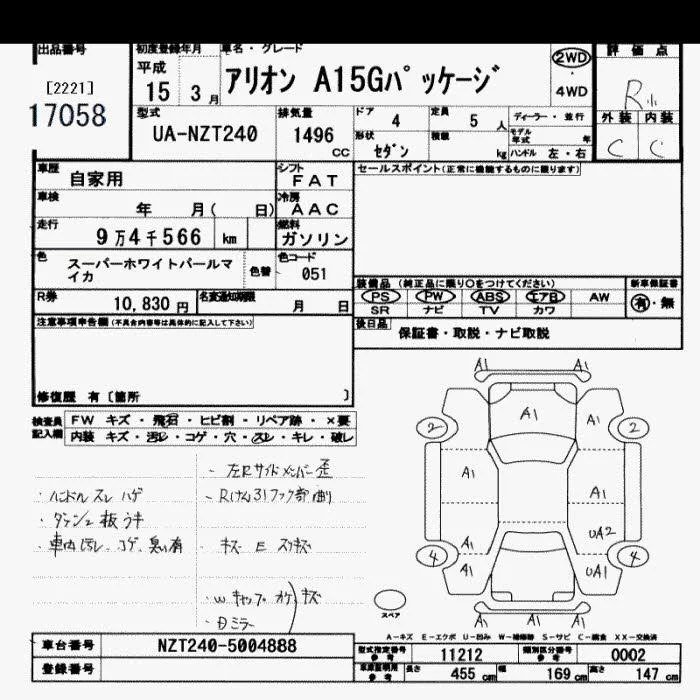 出品番号
[2221]
17058
初度登録年月
平成
15 3月
車名・グレード
アリオン A15Gパッケージ
2WD
4WD
評価点
R小
外装 内装
C C
型式
UA-NZT240
排気量
1496
CC
ドア
4
定員
5 人
ディーラー・並行
形状
セダン
積載
kg
モデル年式 年
ハンドル 左・右
車歴
自家用
シフト
FAT
車検
年 月( 日)
冷房
AAC
走行
9万4千566 km
燃料
ガソリン
色
スーパーホワイトパールマイカ
色替
色コード
051
R券
10,830 円
名変通知期限
月 日
セールスポイント(正常に機能するものに限ります)
装備品 (純正品に限り○をつけてください)
PS PW ABS エアB AW
SR ナビ TV カワ
新車保証書
有・無
後日品
保証書・取説・ナビ取説
注意事項申告欄(不具合内容等は具体的に記入して下さい)
修復歴 有〔箇所 〕
検査員記入欄
FW キズ・飛石・ヒビ割・リペア跡・×要
内装 キズ・汚レ・コゲ・穴・スレ・キレ・破レ
・左Rサイドメンバー歪
・ハンドル スレ ハゲ
・ダッシュ板ウキ
・車内汚レ、コゲ、臭い有
・キズ E スリキズ
・W キャップ オケ キズ
・Dミラー
A1 A1
A1
A1 A1
2 2
A1 A1
UA2
4 4
A1
A1 UA1
A1 A1 A1
スペア
A-キズ E-エクボ U-凹み W-補修跡 S-サビ C-腐食 XX-交換済
車台番号
NZT240-5004888
登録番号
型式指定番号
参考
11212
類別区分番号
参考
0002
車庫証明用
参考
長さ 455 cm 幅 169 cm 高さ 147 cm